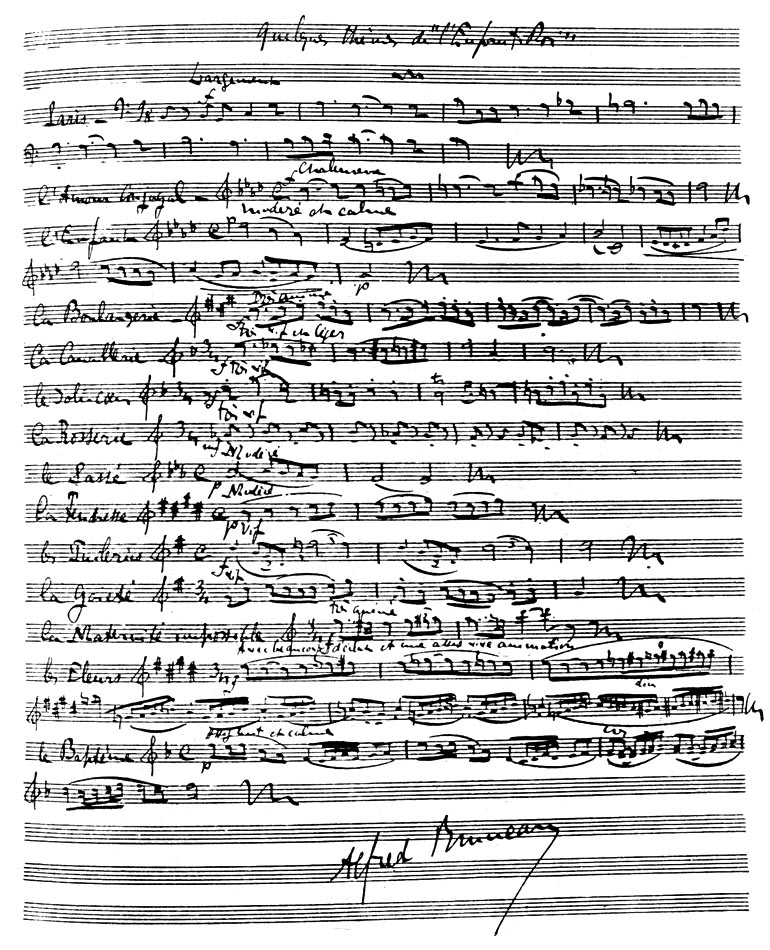 Quelques thèmes de "l'Enfant Roi"
Largement
f
Paris - 9/8
Chaleureux
f
l'Amour Conjugal - C
modéré et calme
l'Enfant - C p
p
la Boulangerie -
Très vif et léger
f Très vif
le Joli cœur
f Très vif
la Rosserie
mf Modéré
le Passé C
p Modéré
la Tendresse C
p Vif
les Tuileries C
f vif
la Gaieté
la Maternité impossible
Avec beaucoup d'éclat et une allure vive
les Fleurs
dim
et calme
le Baptême C
p
Alfred Bruneau